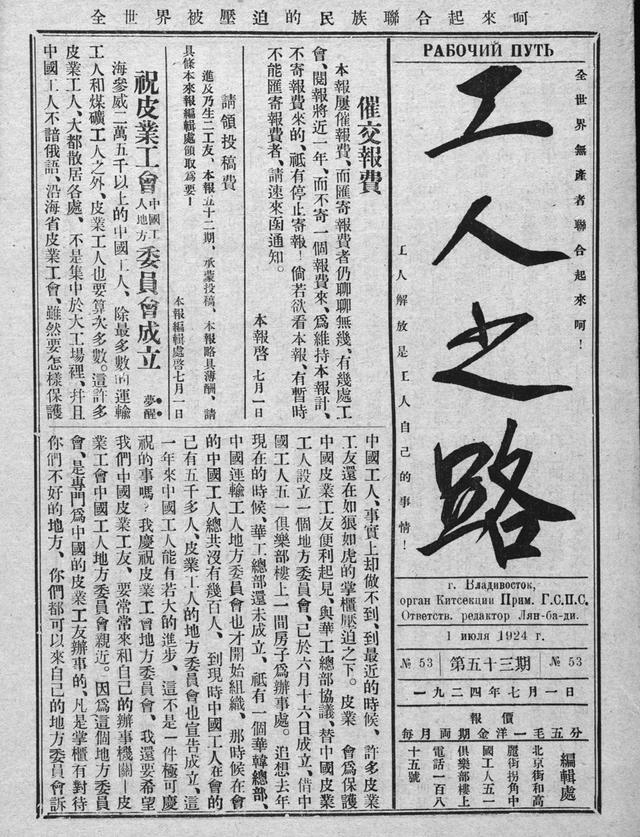 全世界被壓迫的民族聯合起來呵
РАБОЧИЙ ПУТЬ
全世界無產者聯合起來呵！
工人之路
工人解放是工人自己的事情！
г. Владивосток,
орган Китсекции Прим. Г.С.П.С.
Ответств. редактор Лян-ба-ди.
1 июля 1924 г.
№ 53 第五十三期 № 53
一九二四年七月一日
報價
每月兩期金洋一毛五分
編輯處
北京街和高
麗街拐角中
國工人五一
俱樂部樓上
電話一百八
十五號
催交報費
本報屢催報費、而匯寄報費者仍聊聊無幾、有幾處工
會、閱報將近一年、而不寄一個報費來、爲維持本報計、
不寄報費來的、祇有停止寄報！倘若欲看本報、有暫時
不能匯寄報費者、請速來函通知。
本報啓 七月一日
請領投稿費
進及乃生二工友、本報五十二期、承蒙投稿、本報略具薄酬、請
具條本來報編輯處領取爲要！
本報編輯處啓七月一日
祝皮業工會中國工人地方委員會成立
夢醒
海參威二萬五千以上的中國工人、除最多數的運輸
工人和煤礦工人之外、皮業工人也要算次多數。這許多
皮業工人、大都散居各處、不是集中於大工場裡、幷且
中國工人不諳俄語、沿海省皮業工會、雖然要怎樣保護
中國工人、事實上却做不到、到最近的時候、許多皮業
工友還在如狼如虎的掌櫃壓迫之下。皮業 會爲保護
中國皮業工友便利起見、與華工總部協議、替中國皮業
工人設立一個地方委員會、已於六月十六日成立、借中
國工人五一俱樂部樓上一間房子爲辦事處。追想去年
現在的時候、華工總部還未成立、祇有一個華韓總部、
中國運輸工人地方委員會也才開始組織、那時候在會
的中國工人總共沒有幾百人、到現時中國工人在會的
已有五千多人、皮業工人的地方委員會也宣告成立、這
一年來中國工人能有若大的進步、這不是一件極可慶
祝的事嗎？我慶祝皮業工會地方委員會、我還要希望
我們中國皮業工友、要常常來和自己的辦事機關—皮
業工會中國工人地方委員會親近。因爲這個地方委員
會、是專門爲中國的皮業工友辦事的、凡是掌櫃有對待
你們不好的地方、你們都可以來自己的地方委員會訴